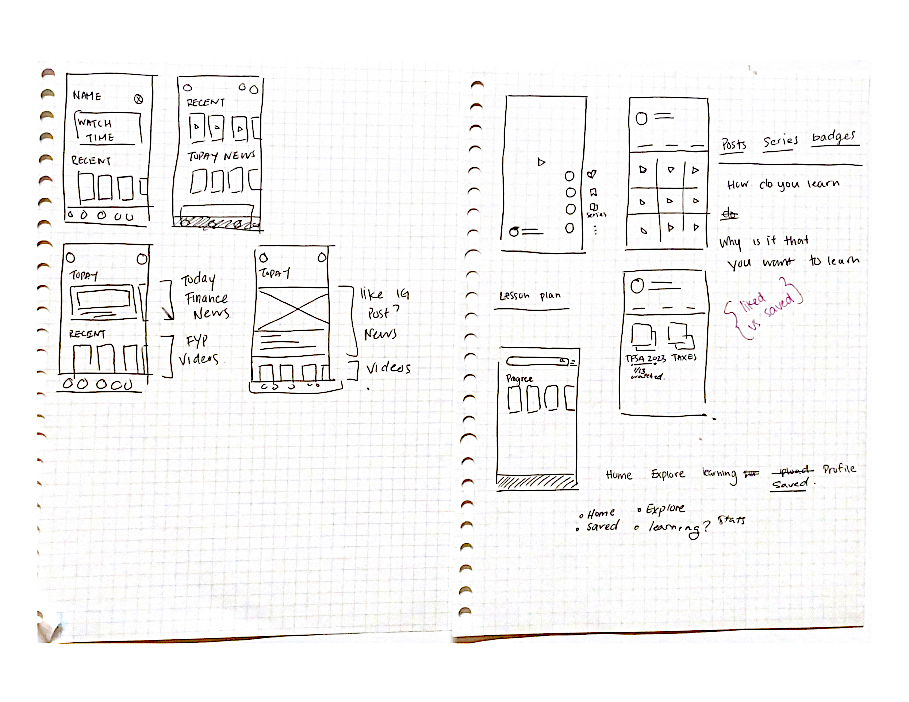 NAME
WATCH
TIME
RECENT
RECENT
TODAY NEWS
TODAY
RECENT
Today
Finance
News
FYP
Videos
TODAY
like IG
Post?
News
Videos
series
Posts Series badges
How do you learn
do
Why is it that
you want to learn
Lesson plan
liked
vs. saved
TFSA 2023 TAXES
1/13
watched.
Progree
Home Explore learning upload Profile
Saved.
Home Explore
saved learning? Stats